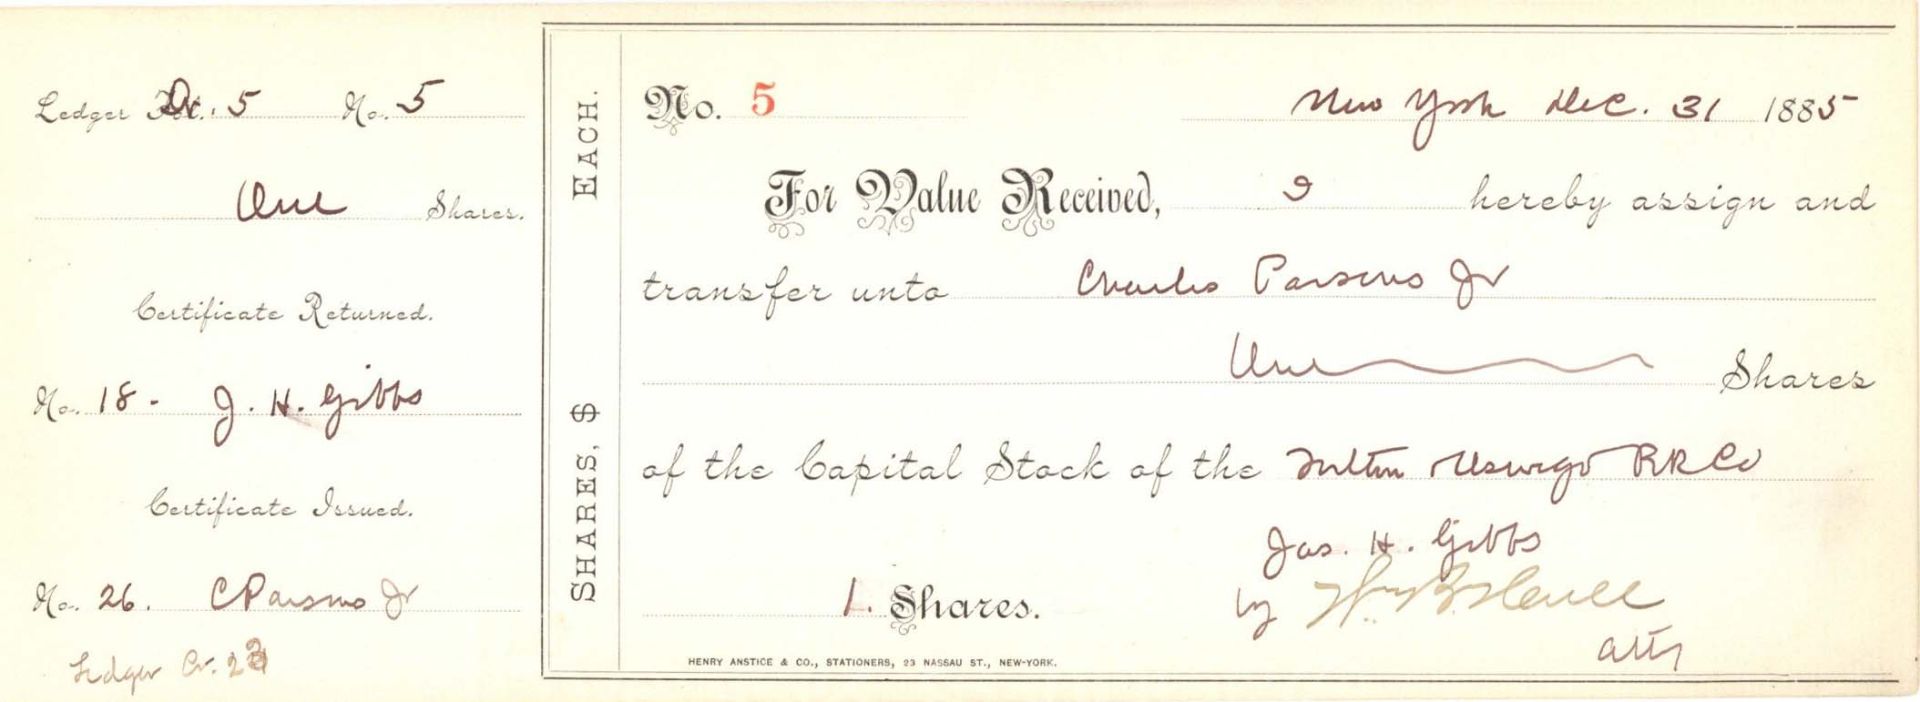 Ledger Dr. 5 No. 5
One Shares.
Certificate Returned.
No. 18 - J. H. Gibbs
Certificate Issued.
No. 26. C Parsons Jr
Ledger Cr. 23
SHARES, $ EACH.
No. 5 New York Dec. 31 1885
For Value Received, I hereby assign and
transfer unto Charles Parsons Jr
One Shares
of the Capital Stock of the Fulton Oswego RR Co
Jas. H. Gibbs
1. Shares. by Wm B.
atty
HENRY ANSTICE & CO., STATIONERS, 23 NASSAU ST., NEW-YORK.